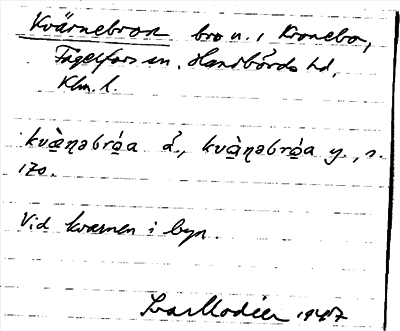 Kvärnebron bro n. i Kronebo,
Fågelfors sn. Handbörds hd,
Klm. l.
kvæ̀ṇəbrǫ́a ä., kvą̀ṇəbrǫ́a y., s.
170.
Vid kvarnen i byn.
Ivar Modéer 1947